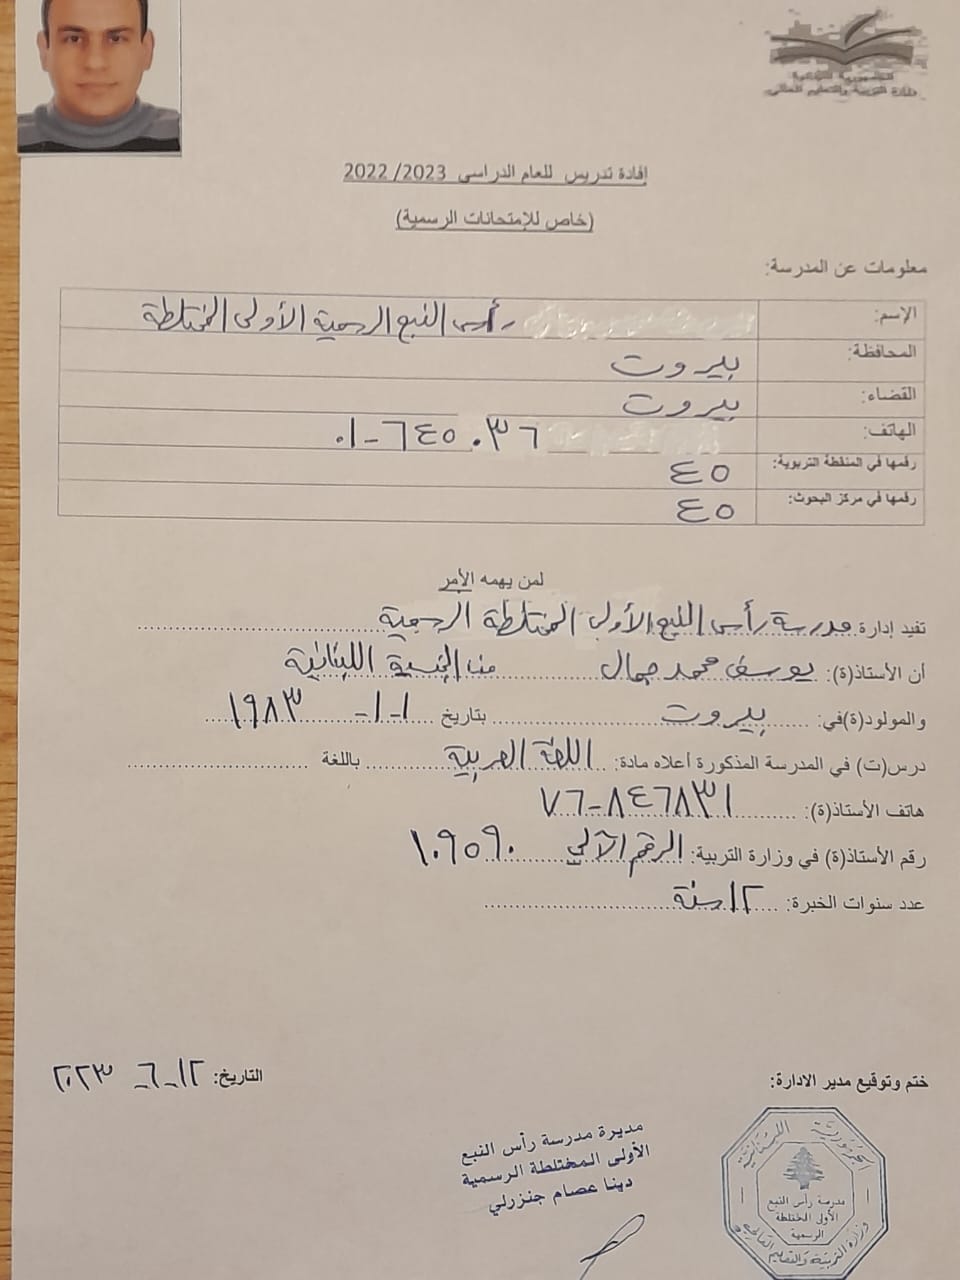 الجمهورية اللبنانية
وزارة التربية والتعليم العالي
إفادة تدريس للعام الدراسي 2023/ 2022
(خاص للإمتحانات الرسمية)
معلومات عن المدرسة:
الإسم: رأس النبع الرسمية الأولى المختلطة
المحافظة: بيروت
القضاء: بيروت
الهاتف: ٠١-٦٤٥٠٣٦
رقمها في المنطقة التربوية: ٤٥
رقمها في مركز البحوث: ٤٥
لمن يهمه الأمر
تفيد إدارة مدرسة رأس النبع الأولى المختلطة الرسمية
أن الأستاذ(ة): يوسف محمد جمال من الجنسية اللبنانية
والمولود(ة)في: بيروت بتاريخ ١-١- ١٩٨٣
درس(ت) في المدرسة المذكورة أعلاه مادة: اللغة العربية باللغة
هاتف الأستاذ(ة): ٧٦-٨٤٦٨٣١
رقم الأستاذ(ة) في وزارة التربية: الرقم الآلي ١٠٩٥٩٠
عدد سنوات الخبرة: ١٢ سنة
ختم وتوقيع مدير الادارة:
التاريخ: ١٢-٦-٢٠٢٣
مديرة مدرسة رأس النبع
الأولى المختلطة الرسمية
دينا عصام جنزرلي
الجمهورية اللبنانية
مدرسة رأس النبع
الأولى المختلطة
الرسمية
وزارة التربية والتعليم العالي